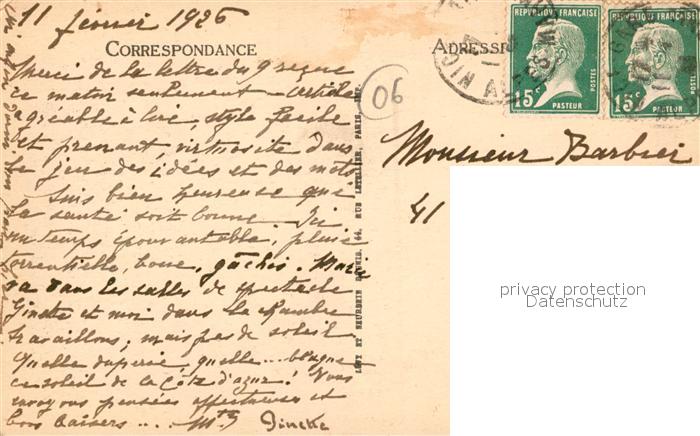 11 février 1926
CORRESPONDANCE
Merci de la lettre du 9 reçue
ce matin seulement - article
agréable à lire, style facile
et prenant, virtuosité dans
le jeu des idées et des mots
Suis bien heureuse que
la santé soit bonne. Ici
un temps épouvantable, pluie
torrentielle, boue, gâchis. Marie
va dans les salles de spectacle
Ginette et moi dans la chambre
travaillons; mais pas de soleil
Quelle duperie, quelle... blague
ce soleil de la Côte d'azur! Nous
envoyons pensées affectueuses et
bons baisers ....
06
LEVY ET NEURDEIN RÉUNIS, 44, RUE LETELLIER, PARIS, IMP.
ADRESSE
RÉPUBLIQUE FRANÇAISE
15c
POSTES
PASTEUR
RÉPUBLIQUE FRANÇAISE
15c
POSTES
PASTEUR
Monsieur Barbier
41
privacy protection
Datenschutz